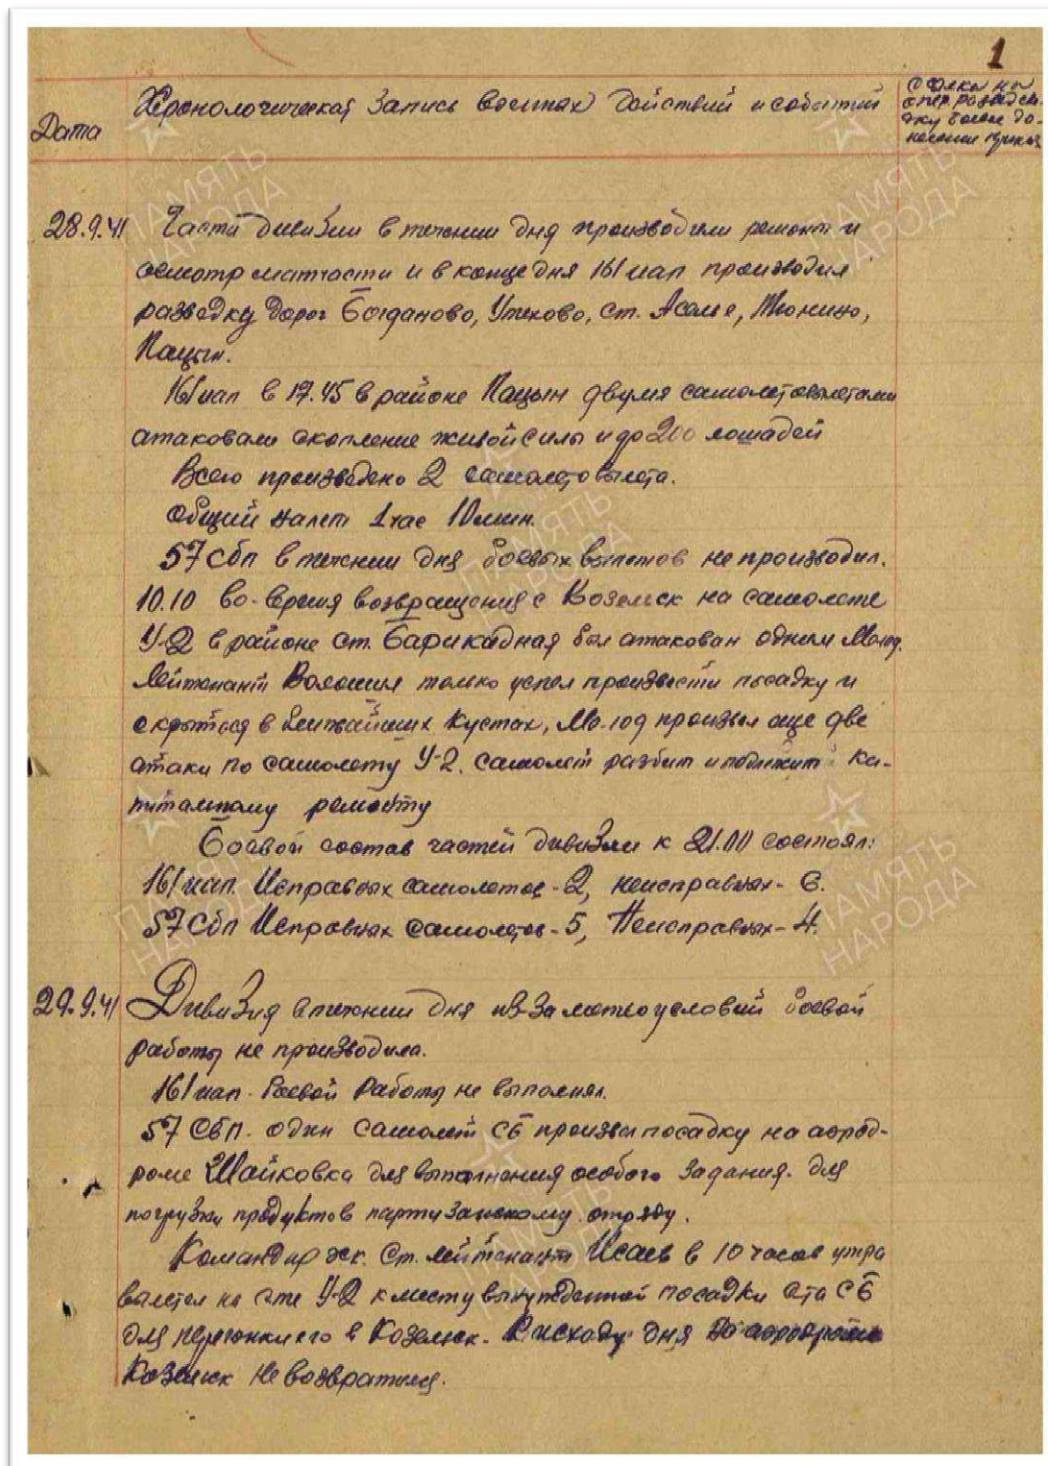 1
Дата
Хронологическая запись военных действий и событий
28.9.41 Части дивизии в течении дня производили ремонт и
осмотр матчасти и в конце дня 161 иап производил
разведку дорог Богданово, Утехово, ст. Аселье, Тюнино,
Пацын.
161 иап в 17.45 в районе Пацын двумя самолетовылетами
атаковали скопление живой силы и до 200 лошадей
Всего произведено 2 самолетовылета.
Общий налет 1 час 10 мин.
57 сбп в течении дня боевых вылетов не производил.
10.10 во-время возвращения с Козельск на самолете
У-2 в районе ст. Барикадная был атакован одним Ме-109.
Лейтенант Волошин только успел произвести посадку и
скрыться в ближайших кустах, Ме-109 произвел еще две
атаки по самолету У-2. Самолет разбит и подлежит ка-
питальному ремонту
Боевой состав частей дивизии к 21.00 состоял:
161 иап. Исправных самолетов - 2, неисправных - 6.
57 сбп Исправных самолетов - 5, Неисправных - 4.
29.9.41 Дивизия в течении дня из-за метеоусловий боевой
работы не производила.
161 иап. Боевой работы не выполнял.
57 СБП. один самолет СБ произвел посадку на аэрод-
роме Шайковка для выполнения особого задания. для
погрузки продуктов партизанскому отряду.
Командир эск. Ст. лейтенант Исаев в 10 часов утра
вылетел на с-те У-2 к месту вынужденной посадки с-та СБ
для перегонки его в Козельск. К исходу дня на аэродром
Козельск не возвратился.
ПАМЯТЬ
НАРОДА